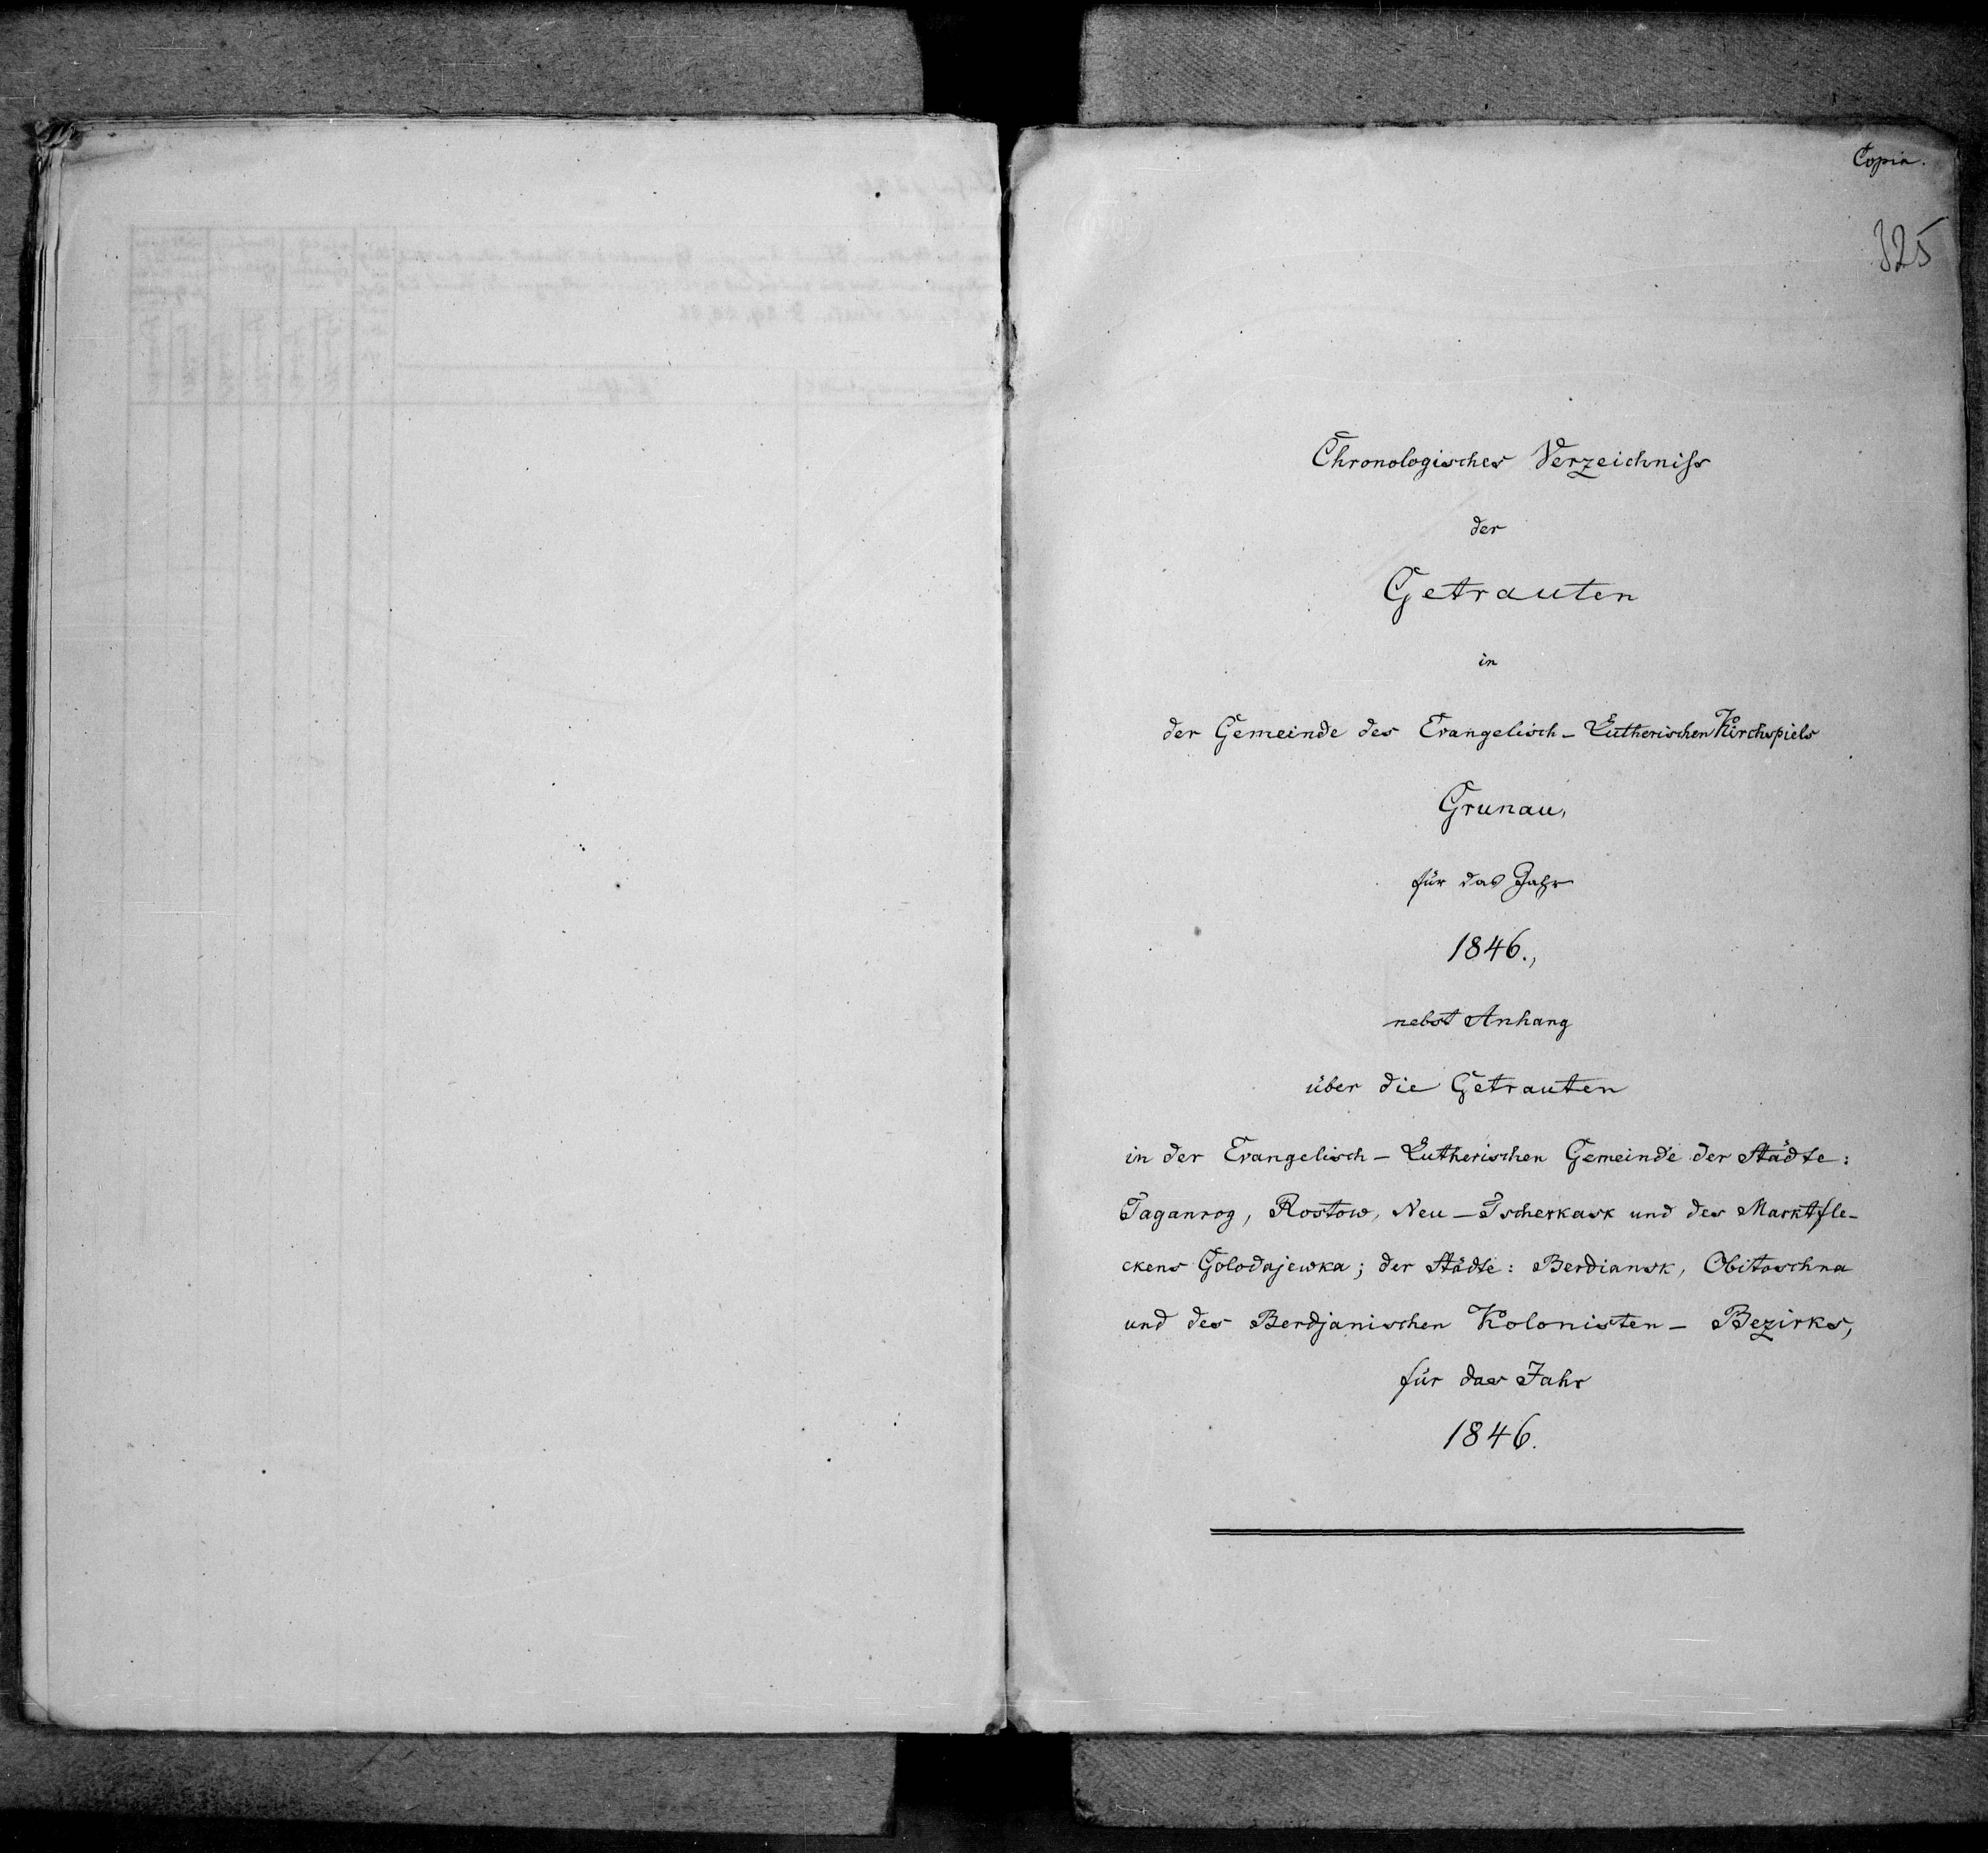 Copia.
325
Chronologisches Verzeichniss
der
Getrauten
in
der Gemeinde des Evangelisch-Lutherischen Kirchspiels
Grunau,
für das Jahr
1846.,
nebst Anhang
über die Getrauten
in der Evangelisch-Lutherischen Gemeinde der Städte:
Taganrog, Rostow, Neu-Tscherkask und des Marktfle-
ckens Golodajewka; der Städte: Berdiansk, Obitoschna
und des Berdjanischen Kolonisten-Bezirks,
für das Jahr
1846.